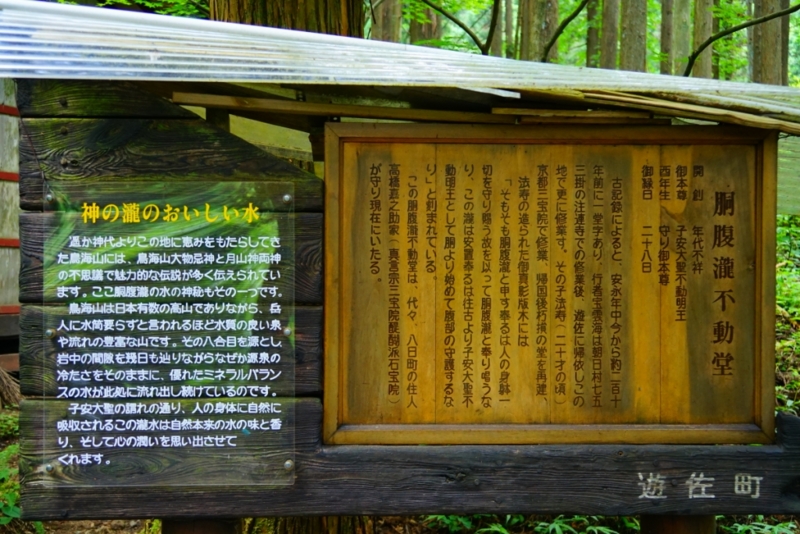 神の瀧のおいしい水
遥か神代よりこの地に恵みをもたらしてき
た鳥海山には、鳥海山大物忌神と月山神両神
の不思議で魅力的な伝説が多く伝えられてい
ます。ここ胴腹瀧の水の神秘もその一つです。
鳥海山は日本有数の高山でありながら、岳
人に水筒要らずと言われるほど水質の良い泉
や流れの豊富な山です。その八合目を源とし
岩中の間隙を幾日も辿りながらなぜか源泉の
冷たさをそのままに、優れたミネラルバラン
スの水が此処に流れ出し続けているのです。
子安大聖の謂れの通り、人の身体に自然に
吸収されるこの瀧水は自然本来の水の味と香
り、そして心の潤いを思い出させて
くれます。
胴腹瀧不動堂
開 創 年代不祥
御本尊 子安大聖不動明王
酉年生 守り御本尊
御縁日 二十八日
古記録によると、安永年中今から約二百十
年前に一堂字あり、行者宝雲海は朝日村七五
三掛の注連寺での修業後、遊佐に帰依しこの
地で更に修業す。その子法寿(二十才の頃)
京都三宝院で修業、帰国後朽損の堂を再建、
法寿の造られた御真影版木には
「そもそも胴腹瀧と申す奉るは人の身躰一
切を守り賜う故を以って胴腹瀧と奉り唱うな
り、この瀧は安置奉るは往古より子安大聖不
動明王として胴より始めて腹部の守護するな
り」と刻まれている。
この胴腹瀧不動堂は、代々、八日町の住人
高橋喜之助家(真言宗三宝院醍醐派石宝院)
が守り現在にいたる。
遊佐町